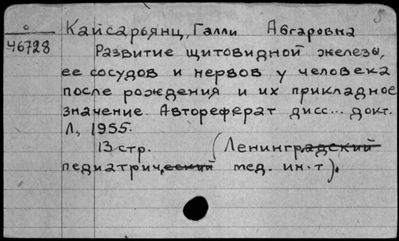 о Кайсарьянц, Галли Абгаровна
46728
Развитие щитовидной железы,
ее сосудов и нервов у человека
после рождения и их прикладное
значение. Автореферат дисс... докт.
Л., 1955.
13 стр. (Ленинградский
педиатрический мед. ин-т).
5